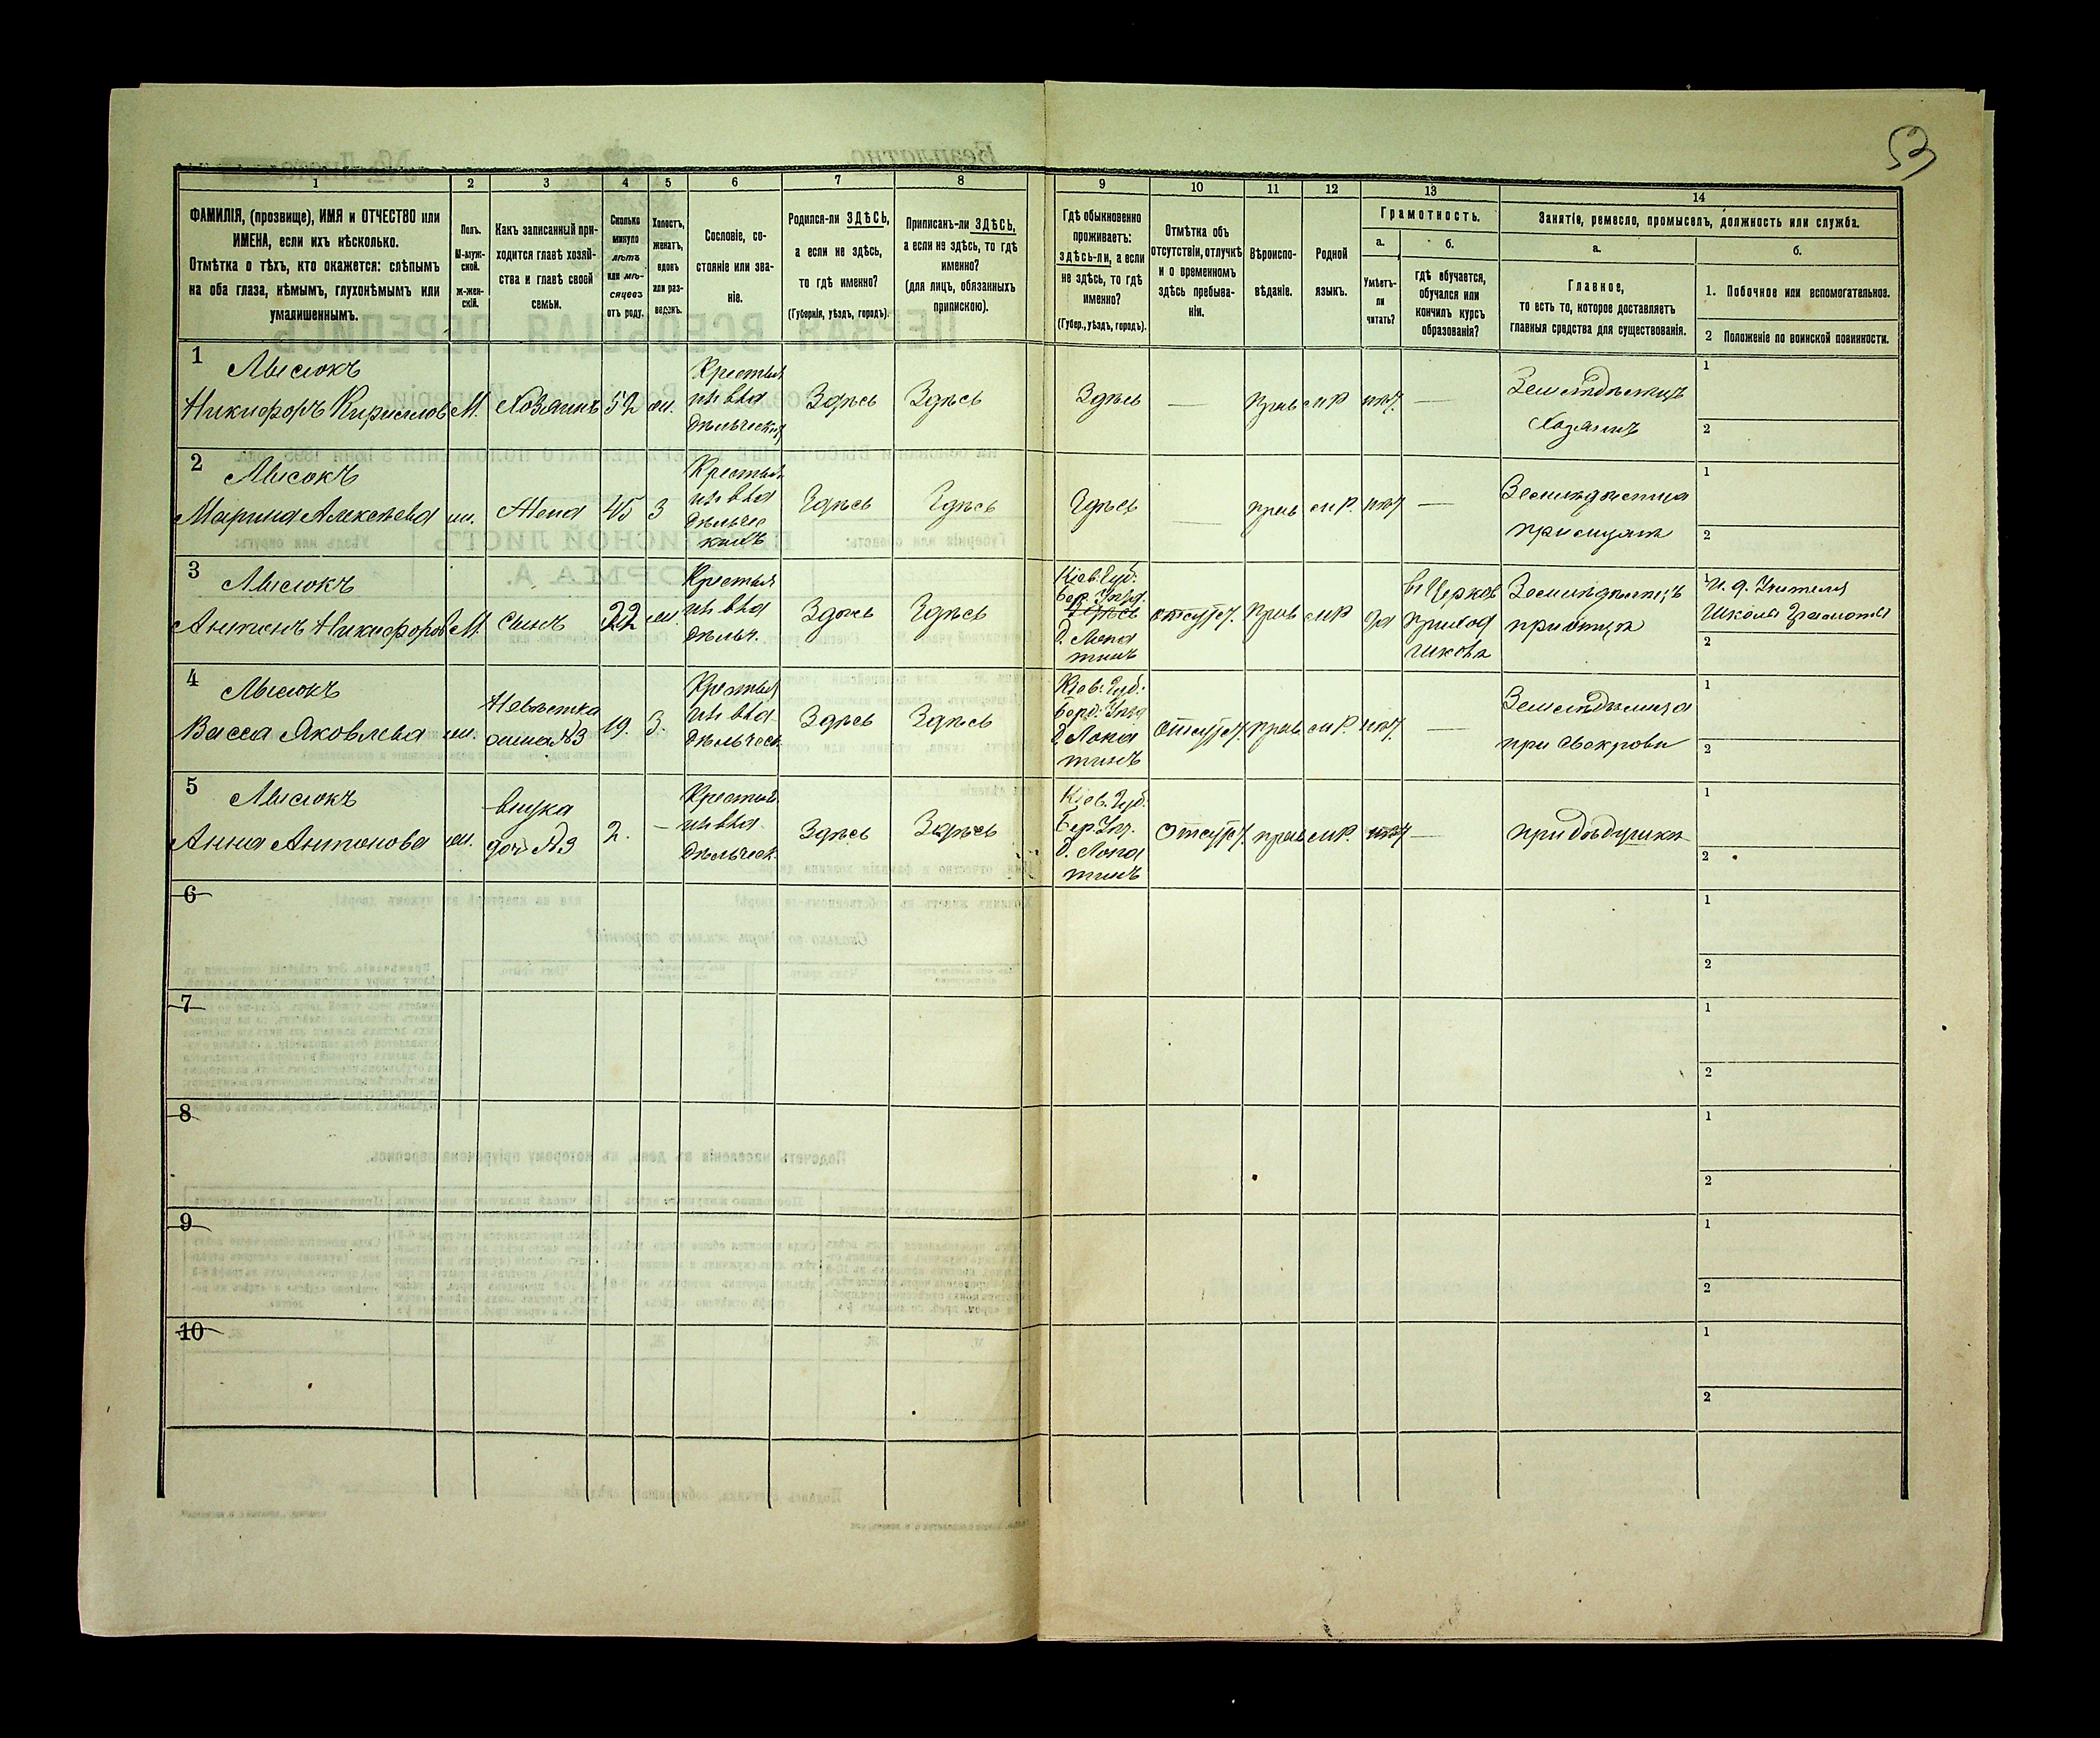 53
1
2
3
4
5
6
7
8
9
10
11
12
13
14
ФАМИЛІЯ, (прозвище), ИМЯ и ОТЧЕСТВО или
ИМЕНА, если ихъ нѣсколько.
Отмѣтка о тѣхъ, кто окажется: слѣпымъ
на оба глаза, нѣмымъ, глухонѣмымъ или
умалишеннымъ.
Полъ.
М-муж-
ской.
ж-жен-
скій.
Какъ записанный при-
ходится главѣ хозяй-
ства и главѣ своей
семьи.
Сколько
минуло
лѣтъ
или мѣ-
сяцевъ
отъ роду.
Холостъ,
женатъ,
вдовъ
или раз-
веденъ.
Сословіе, со-
стояніе или зва-
ніе.
Родился-ли ЗДѢСЬ,
а если не здѣсь,
то гдѣ именно?
(Губернія, уѣздъ, городъ).
Приписанъ-ли ЗДѢСЬ,
а если не здѣсь, то гдѣ
именно?
(для лицъ, обязанныхъ
припискою).
Гдѣ обыкновенно
проживаетъ:
здѣсь-ли, а если
не здѣсь, то гдѣ
именно?
(Губер., уѣздъ, городъ).
Отмѣтка объ
отсутствіи, отлучкѣ
и о временномъ
здѣсь пребыва-
ніи.
Вѣроиспо-
вѣданіе.
Родной
языкъ.
Грамотность.
а.
б.
Умѣетъ-
ли
читать?
гдѣ обучается,
обучался или
кончилъ курсъ
образованія?
Занятіе, ремесло, промыселъ, должность или служба.
а.
б.
Главное,
то есть то, которое доставляетъ
главныя средства для существованія.
1. Побочное или вспомогательное.
2 Положеніе по воинской повинности.
1
Лысюкъ
Никифоръ Кирилловъ
М.
Хозяинъ
52
ж.
Крестьян
изъ вла
дѣльческихъ
Здѣсь
Здѣсь
Здѣсь
—
прав
м.р.
нѣт
—
Земледѣлецъ
Хозяинъ
1
2
2
Лысюкъ
Марина Алексѣева
ж.
Жена
45
З
Крестьян
изъ вла
дѣльчес
кихъ
Здѣсь
Здѣсь
Здѣсь
—
прав
м.р.
нѣт
—
Земледѣлица
при мужѣ
1
2
3
Лысюкъ
Антонъ Никифоровъ
М.
Сынъ
22
ж.
Крестья
изъ вла
дѣльч.
Здѣсь
Здѣсь
Кіев. Губ.
Бер. Уѣзд.
Здѣсь
д. Лопа
тинъ
отсутст.
прав
м.р.
Да
въ Церков
приход
школѣ
Земледѣлецъ
при отцѣ
1 И. д. Учителя
Школы Грамоты
2
4
Лысюкъ
Васса Яковлева
ж.
Невѣстка
жена №3
19.
З.
Крестья
изъ вла
дѣльческ.
Здѣсь
Здѣсь
Кіев. Губ.
Берд. Уѣзд
д. Лопа
тинъ
Отсутст.
прав.
м.р.
нѣт.
—
Земледѣлица
при свекрови
1
2
5
Лысюкъ
Анна Антонова
ж.
внука
доч. №3
2.
—
Крестья
изъ вла
дѣльческ.
Здѣсь
Здѣсь
Кіев. Губ.
Бер. Уѣз.
д. Лопа
тинъ
Отсутст.
прав
м.р.
нѣт
—
при дѣдушкѣ
1
2
6
1
2
7
1
2
8
1
2
9
1
2
10
1
2